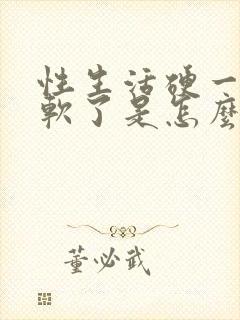 性生活硬一
軟了是怎麼
董必武